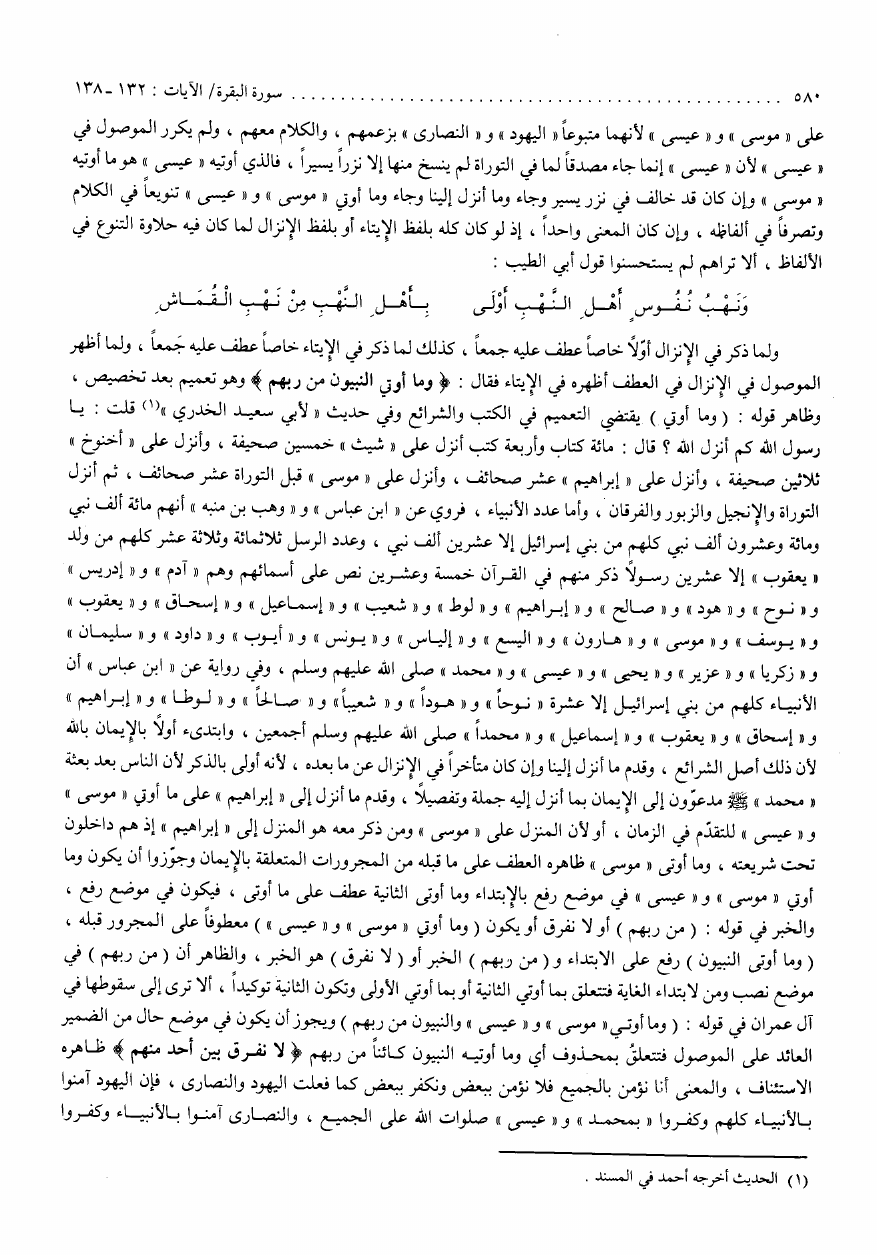 ٥٨٠ ................................................ سورة البقرة/ الآيات : ١٣٢ - ١٣٨
على « موسى » و « عيسى » لأنهما متبوعاً « اليهود » و « النصارى » بزعمهم ، والكلام معهم ، ولم يكرر الموصول في
« عيسى » لأن « عيسى » إنما جاء مصدقاً لما في التوراة لم ينسخ منها إلا نزراً يسيراً ، فالذي أوتيه « عيسى » هو ما أوتيه
« موسى » وإن كان قد خالف في نزر يسير وجاء وما أنزل إلينا وجاء وما أوتي « موسى » و « عيسى » تنويعاً في الكلام
وتصرفاً في ألفاظه ، وإن كان المعنى واحداً ، إذ لو كان كله بلفظ الإيتاء أو بلفظ الإنزال لما كان فيه حلاوة التنوع في
الألفاظ ، ألا تراهم لم يستحسنوا قول أبي الطيب :
وَنَهْبُ نُفُوسٍ أَهْلِ النَّهْبِ أَوْلَى بِأَهْلِ النَّهْبِ مِنْ نَهْبِ الْقُمَاشِ
ولما ذكر في الإنزال أوّلاً خاصاً عطف عليه جمعاً ، كذلك لما ذكر في الإيتاء خاصاً عطف عليه جَمعاً ، ولما أظهر
الموصول في الإنزال في العطف أظهره في الإيتاء فقال : ﴿ وما أوتي النبيون من ربهم ﴾ وهو تعميم بعد تخصيص ،
وظاهر قوله : ( وما أوتي ) يقتضي التعميم في الكتب والشرائع وفي حديث « لأبي سعيد الخدري »(١) قلت : يا
رسول الله كم أنزل الله ؟ قال : مائة كتاب وأربعة كتب أنزل على « شيث » خمسين صحيفة ، وأنزل على « أخنوخ »
ثلاثين صحيفة ، وأنزل على « إبراهيم » عشر صحائف ، وأنزل على « موسى » قبل التوراة عشر صحائف ، ثم أنزل
التوراة والإنجيل والزبور والفرقان ، وأما عدد الأنبياء ، فروي عن « ابن عباس » و « وهب بن منبه » أنهم مائة ألف نبي
ومائة وعشرون ألف نبي كلهم من بني إسرائيل إلا عشرين ألف نبي ، وعدد الرسل ثلاثمائة وثلاثة عشر كلهم من ولد
« يعقوب » إلا عشرين رسولاً ذكر منهم في القرآن خمسة وعشرين نص على أسمائهم وهم « آدم » و « إدريس »
و « نوح » و « هود » و « صالح » و « إبراهيم » و « لوط » و « شعيب » و « إسماعيل » و « إسحاق » و « يعقوب »
و « يوسف » و « موسى » و « هارون » و « اليسع » و « إلياس » و « يونس » و « أيوب » و « داود » و « سليمان »
و « زكريا » و « عزير » و « يحيى » و « عيسى » و « محمد » صلى الله عليهم وسلم ، وفي رواية عن « ابن عباس » أن
الأنبياء كلهم من بني إسرائيل إلا عشرة « نوحاً » و « هوداً » و « شعيباً » و « صالحاً » و « لوطا » و « إبراهيم »
و « إسحاق » و « يعقوب » و « إسماعيل » و « محمداً » صلى الله عليهم وسلم أجمعين ، وابتدىء أولاً بالإيمان بالله
لأن ذلك أصل الشرائع ، وقدم ما أنزل إلينا وإن كان متأخراً في الإنزال عن ما بعده ، لأنه أولى بالذكر لأن الناس بعد بعثة
« محمد » ﷺ مدعوّون إلى الإيمان بما أنزل إليه جملة وتفصيلاً ، وقدم ما أنزل إلى « إبراهيم » على ما أوتي « موسى »
و « عيسى » للتقدّم في الزمان ، أو لأن المنزل على « موسى » ومن ذكر معه هو المنزل إلى « إبراهيم » إذ هم داخلون
تحت شريعته ، وما أوتى « موسى » ظاهره العطف على ما قبله من المجرورات المتعلقة بالإيمان وجوّزوا أن يكون وما
أوتي « موسى » و « عيسى » في موضع رفع بالإبتداء وما أوتى الثانية عطف على ما أوتى ، فيكون في موضع رفع ،
والخبر في قوله : ( من ربهم ) أو لا نفرق أو يكون ( وما أوتي « موسى » و « عيسى » ) معطوفاً على المجرور قبله ،
( وما أوتى النبيون ) رفع على الابتداء و ( من ربهم ) الخبر أو ( لا نفرق ) هو الخبر ، والظاهر أن ( من ربهم ) في
موضع نصب ومن لابتداء الغاية فتتعلق بما أوتي الثانية أو بما أوتي الأولى وتكون الثانية توكيداً ، ألا ترى إلى سقوطها في
آل عمران في قوله : ( وما أوتي « موسى » و « عيسى » والنبيون من ربهم ) ويجوز أن يكون في موضع حال من الضمير
العائد على الموصول فتتعلقُ بمحذوف أي وما أوتيه النبيون كائناً من ربهم ﴿ لا نفرق بين أحد منهم ﴾ ظاهره
الاستئناف ، والمعنى أنا نؤمن بالجميع فلا نؤمن ببعض ونكفر ببعض كما فعلت اليهود والنصارى ، فإن اليهود آمنوا
بالأنبياء كلهم وكفروا « بمحمد » و « عيسى » صلوات الله على الجميع ، والنصارى آمنوا بالأنبياء وكفروا
(١) الحديث أخرجه أحمد في المسند .